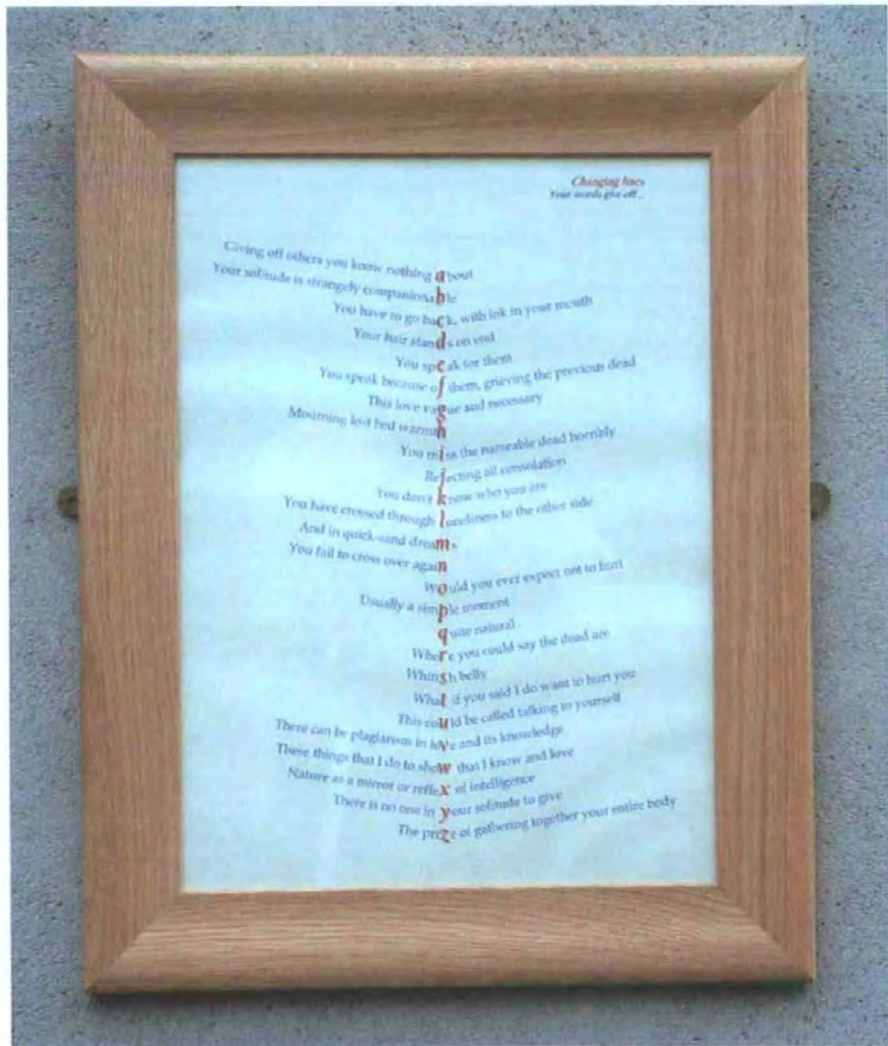 Changing lines
Your words give off...
Giving off others you know nothing about
Your solitude is strangely companionable
You have to go back, with ink in your mouth
Your hair stands on end
You speak for them
You speak because of them, grieving the previous dead
This love vague and necessary
Mourning lost bed warmth
You miss the nameable dead horribly
Rejecting all consolation
You don't know who you are
You have crossed through loneliness to the other side
And in quick-sand dreams
You fail to cross over again
Would you ever expect not to hurt
Usually a simple moment
quite natural
Where you could say the dead are
Whitish belly
What if you said I do want to hurt you
This could be called talking to yourself
There can be plagiarism in love and its knowledge
These things that I do to show that I know and love
Nature as a mirror or reflex of intelligence
There is no one in your solitude to give
The prize of gathering together your entire body